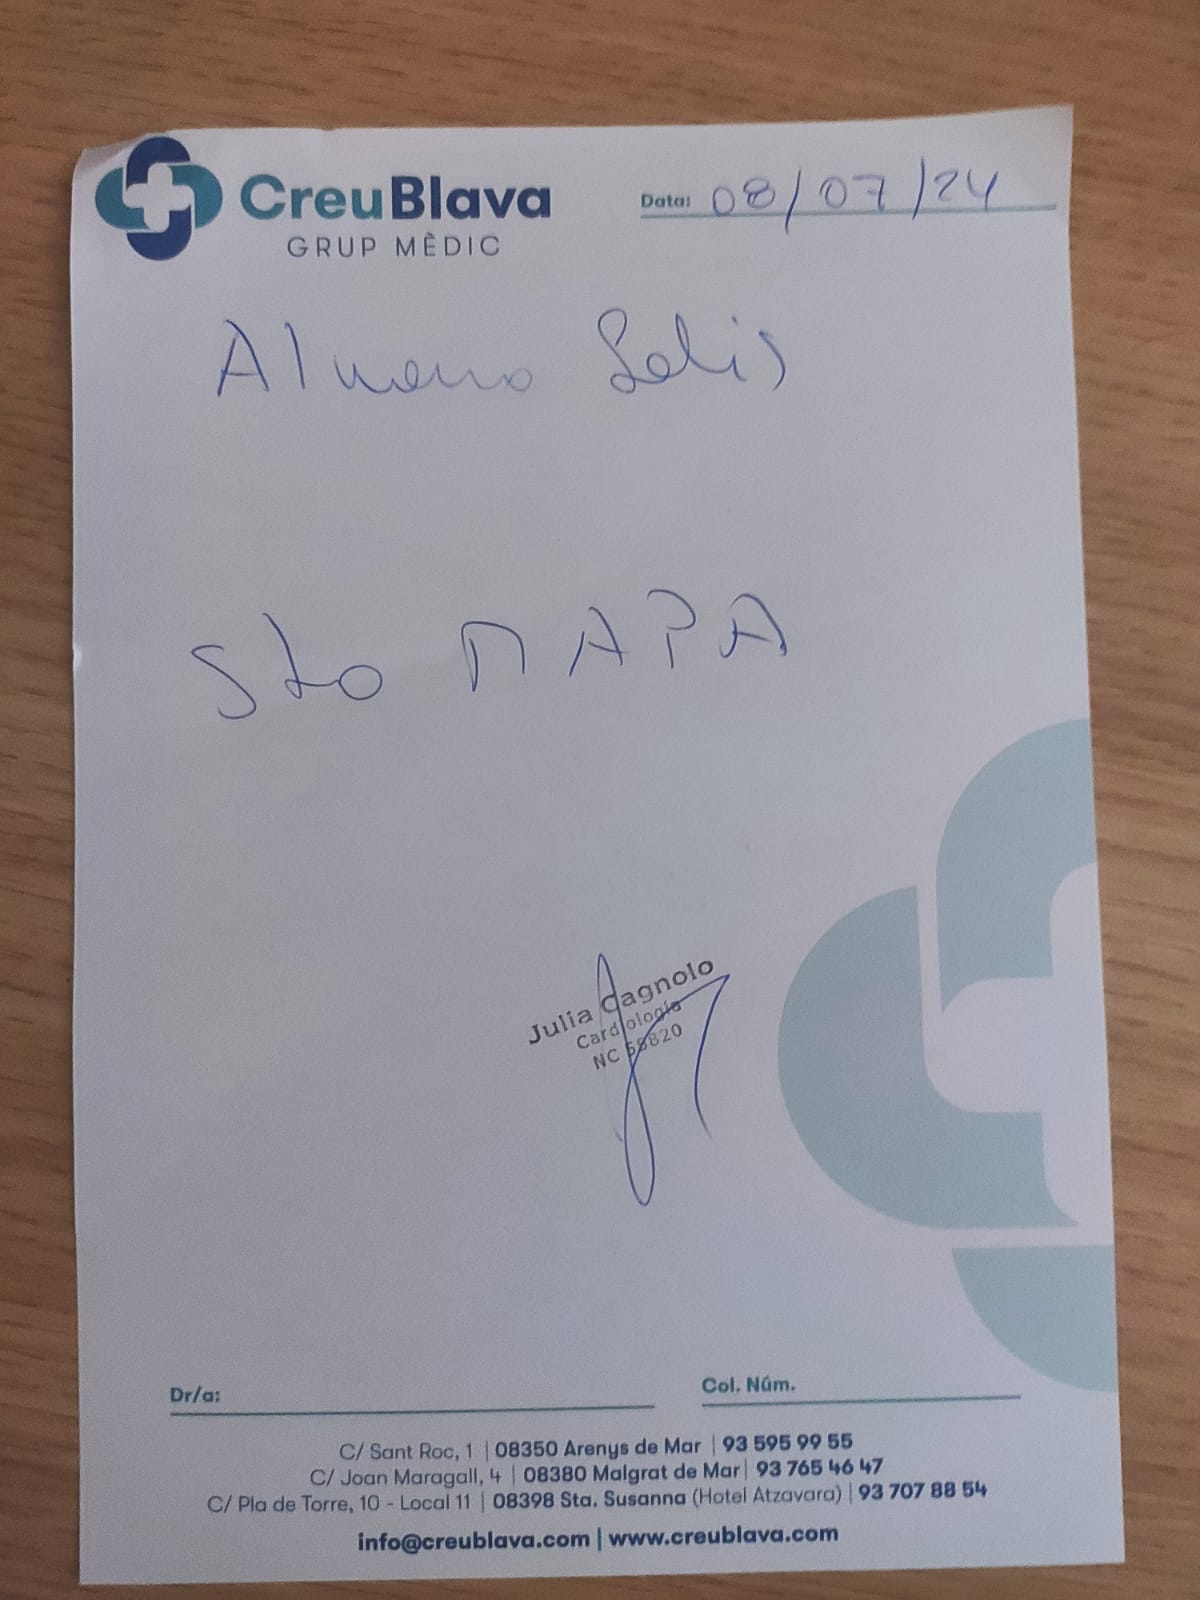 CreuBlava
GRUP MÈDIC
Data: 08/07/24
Sto MAPA
Julia Cagnolo
Cardiología
NC 58820
Dr/a:
Col. Núm.
C/ Sant Roc, 1 | 08350 Arenys de Mar | 93 595 99 55
C/ Joan Maragall, 4 | 08380 Malgrat de Mar | 93 765 46 47
C/ Pla de Torre, 10 - Local 11 | 08398 Sta. Susanna (Hotel Atzavara) | 93 707 88 54
info@creublava.com | www.creublava.com